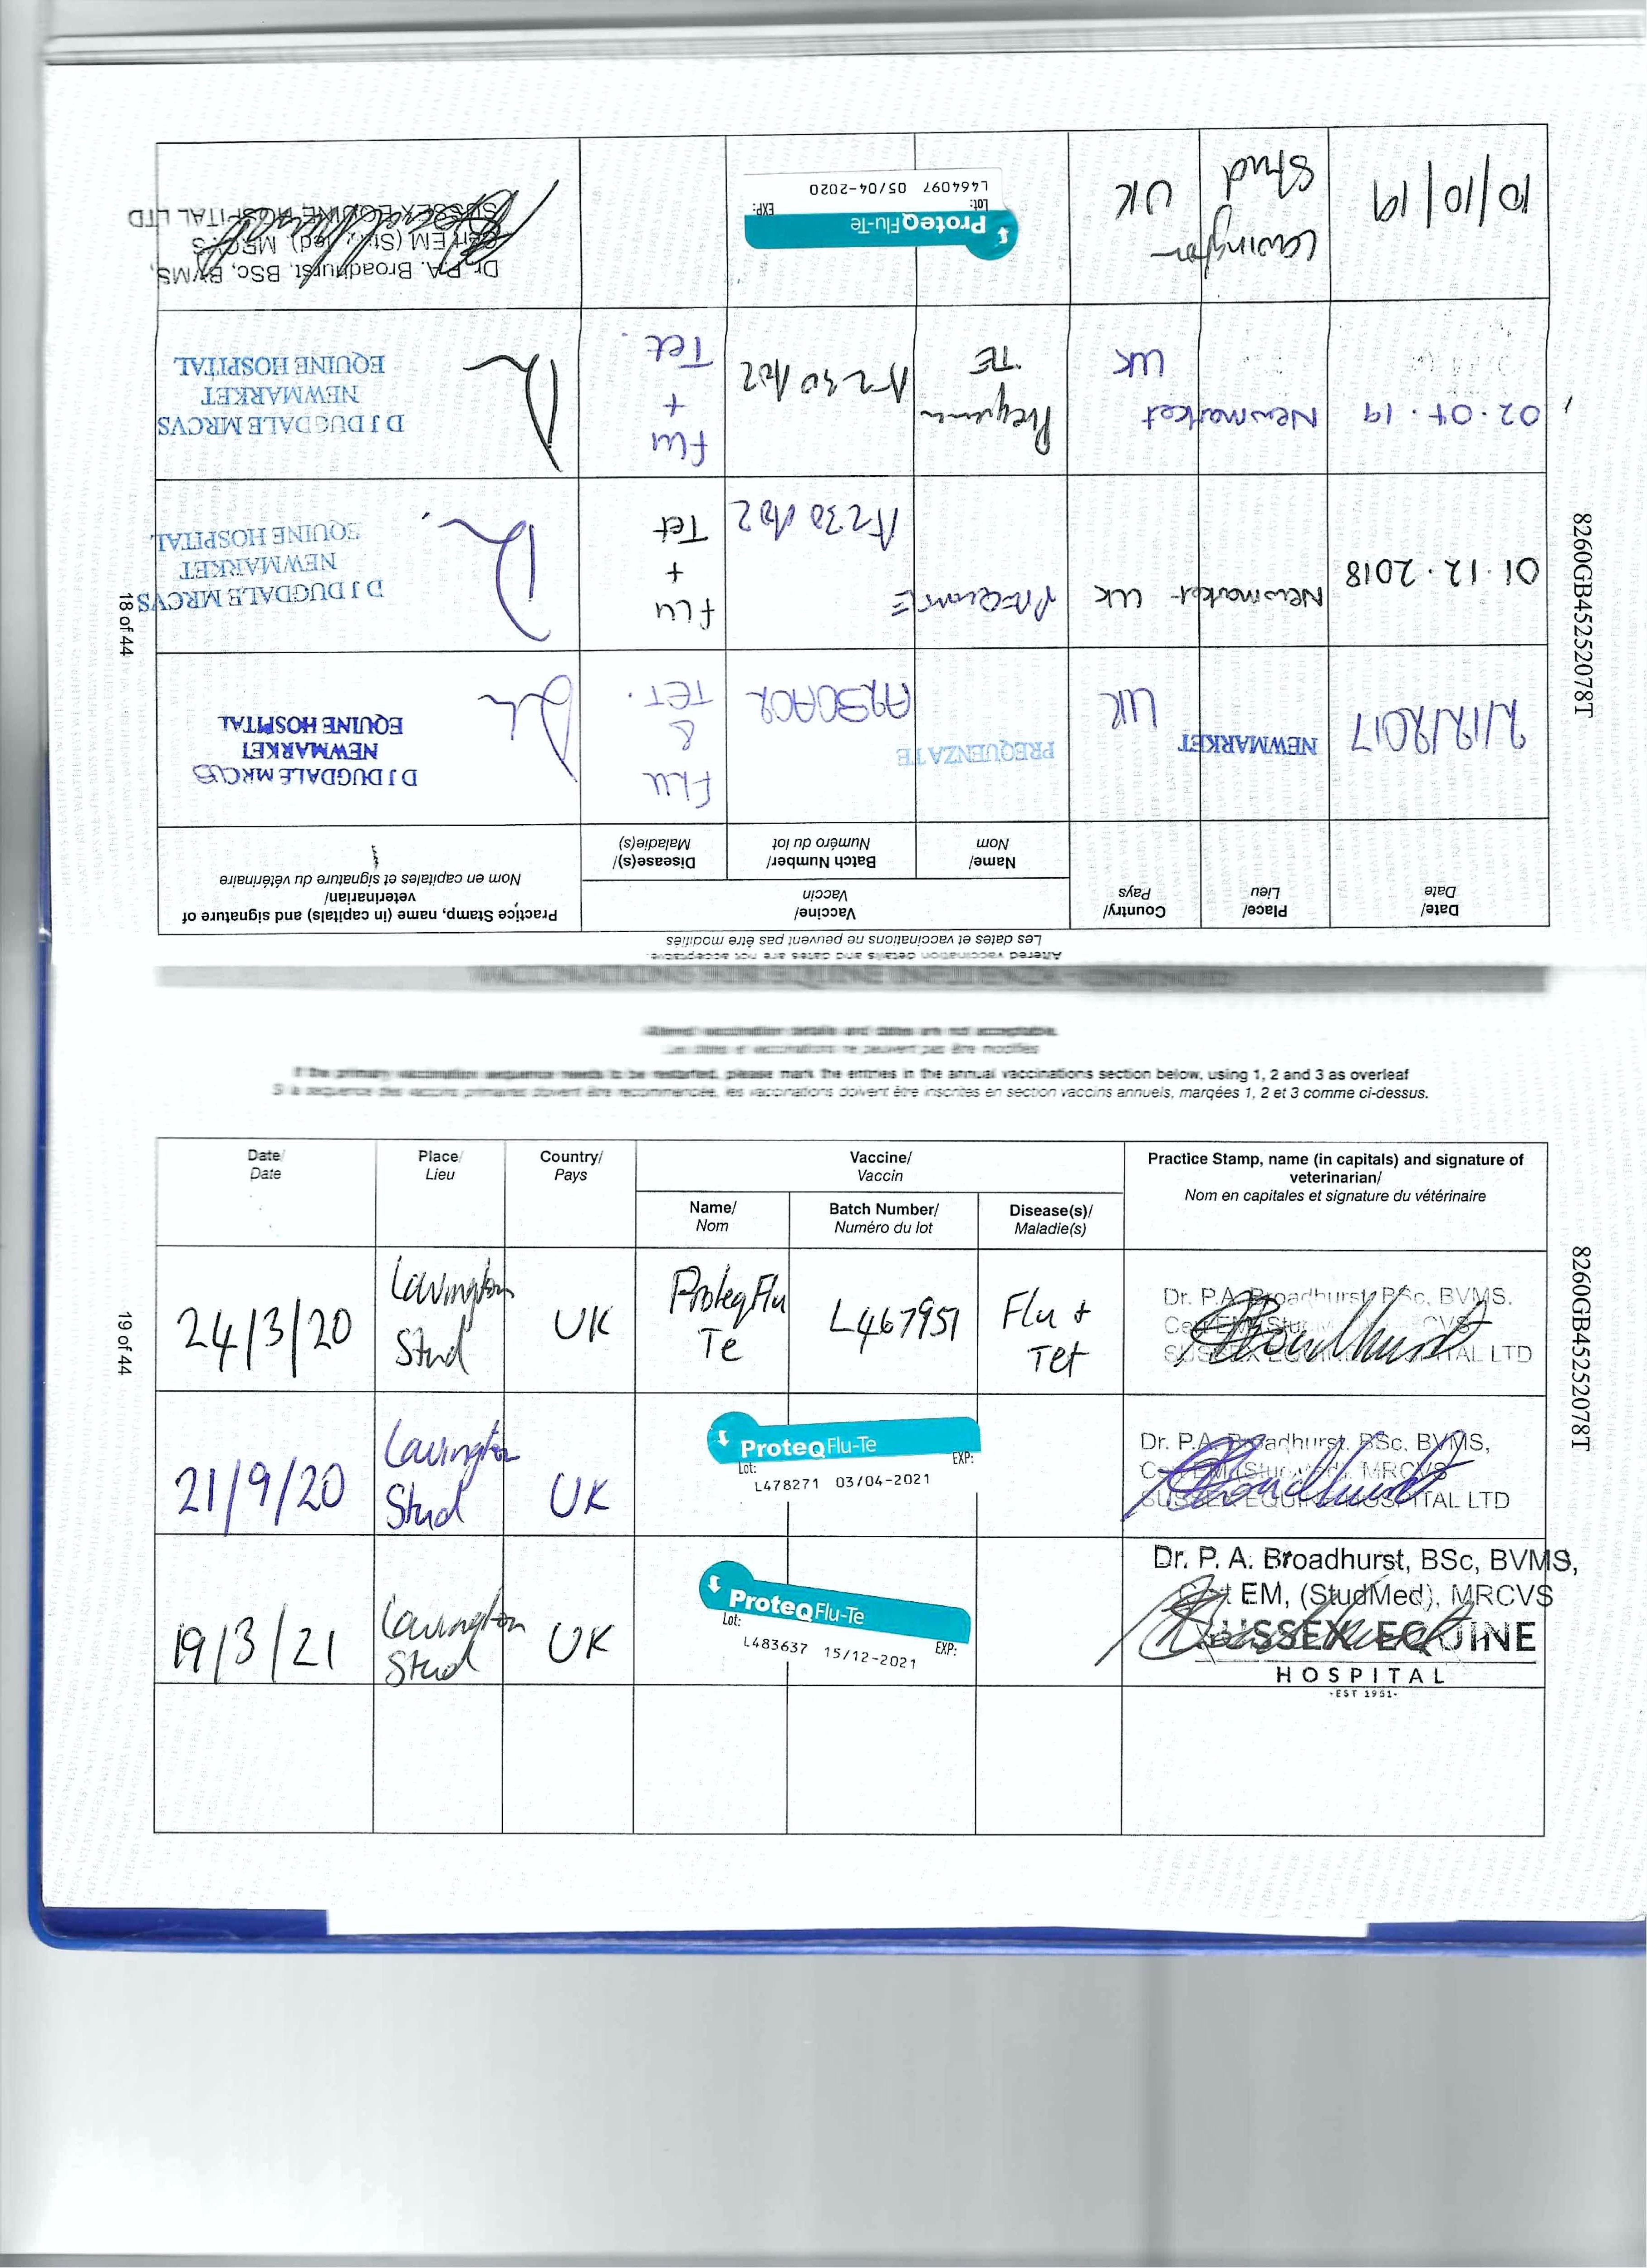 VACCINATIONS FOR EQUINE INFLUENZA - CONTINUED
Altered vaccination details and dates are not acceptable.
Les dates et vaccinations ne peuvent pas être modifiés
Date/
Date
Place/
Lieu
Country/
Pays
Vaccine/
Vaccin
Name/
Nom
Batch Number/
Numéro du lot
Disease(s)/
Maladie(s)
Practice Stamp, name (in capitals) and signature of
veterinarian/
Nom en capitales et signature du vétérinaire
2/12/2017
NEWMARKET
UK
PREQUENZA TE
A230A02
FLU
&
TET.
D J DUGDALE MRCVS
NEWMARKET
EQUINE HOSPITAL
01.12.2018
Newmarket
UK
A230A02
Flu
+
Tet
D J DUGDALE MRCVS
NEWMARKET
EQUINE HOSPITAL
02.04.19
Newmarket
UK
TE
A230A02
Flu
+
Tet.
D J DUGDALE MRCVS
NEWMARKET
EQUINE HOSPITAL
10/10/19
Lavington
Stud
UK
ProteqFlu-Te
Lot:
EXP:
L464097 05/04-2020
Dr. P.A. Broadhurst, BSc, BVMS,
Cert EM (Stud Med) MRCVS
SUSSEX EQUINE HOSPITAL LTD
18 of 44
8260GB45252078T
Altered vaccination details and dates are not acceptable.
Les dates et vaccinations ne peuvent pas être modifiés
If the primary vaccination sequence needs to be restarted, please mark the entries in the annual vaccinations section below, using 1, 2 and 3 as overleaf
Si la sequence des vaccins primaires doivent être recommencée, les vacconations doivent être inscrites en section vaccins annuels, marqées 1, 2 et 3 comme ci-dessus.
Date/
Date
Place/
Lieu
Country/
Pays
Vaccine/
Vaccin
Name/
Nom
Batch Number/
Numéro du lot
Disease(s)/
Maladie(s)
Practice Stamp, name (in capitals) and signature of
veterinarian/
Nom en capitales et signature du vétérinaire
24/3/20
Lavington
Stud
UK
ProteqFlu
Te
L467951
Flu +
Tet
Dr. P.A. Broadhurst, BSc, BVMS,
Cert EM (Stud Med) MRCVS
SUSSEX EQUINE HOSPITAL LTD
21/9/20
Lavington
Stud
UK
ProteqFlu-Te
Lot:
EXP:
L478271 03/04-2021
Dr. P.A. Broadhurst, BSc, BVMS,
Cert EM (Stud Med) MRCVS
SUSSEX EQUINE HOSPITAL LTD
19/3/21
Lavington
Stud
UK
ProteqFlu-Te
Lot:
EXP:
L483637 15/12-2021
Dr. P. A. Broadhurst, BSc, BVMS,
Cert EM, (StudMed), MRCVS
SUSSEX EQUINE
HOSPITAL
-EST 1951-
19 of 44
8260GB45252078T